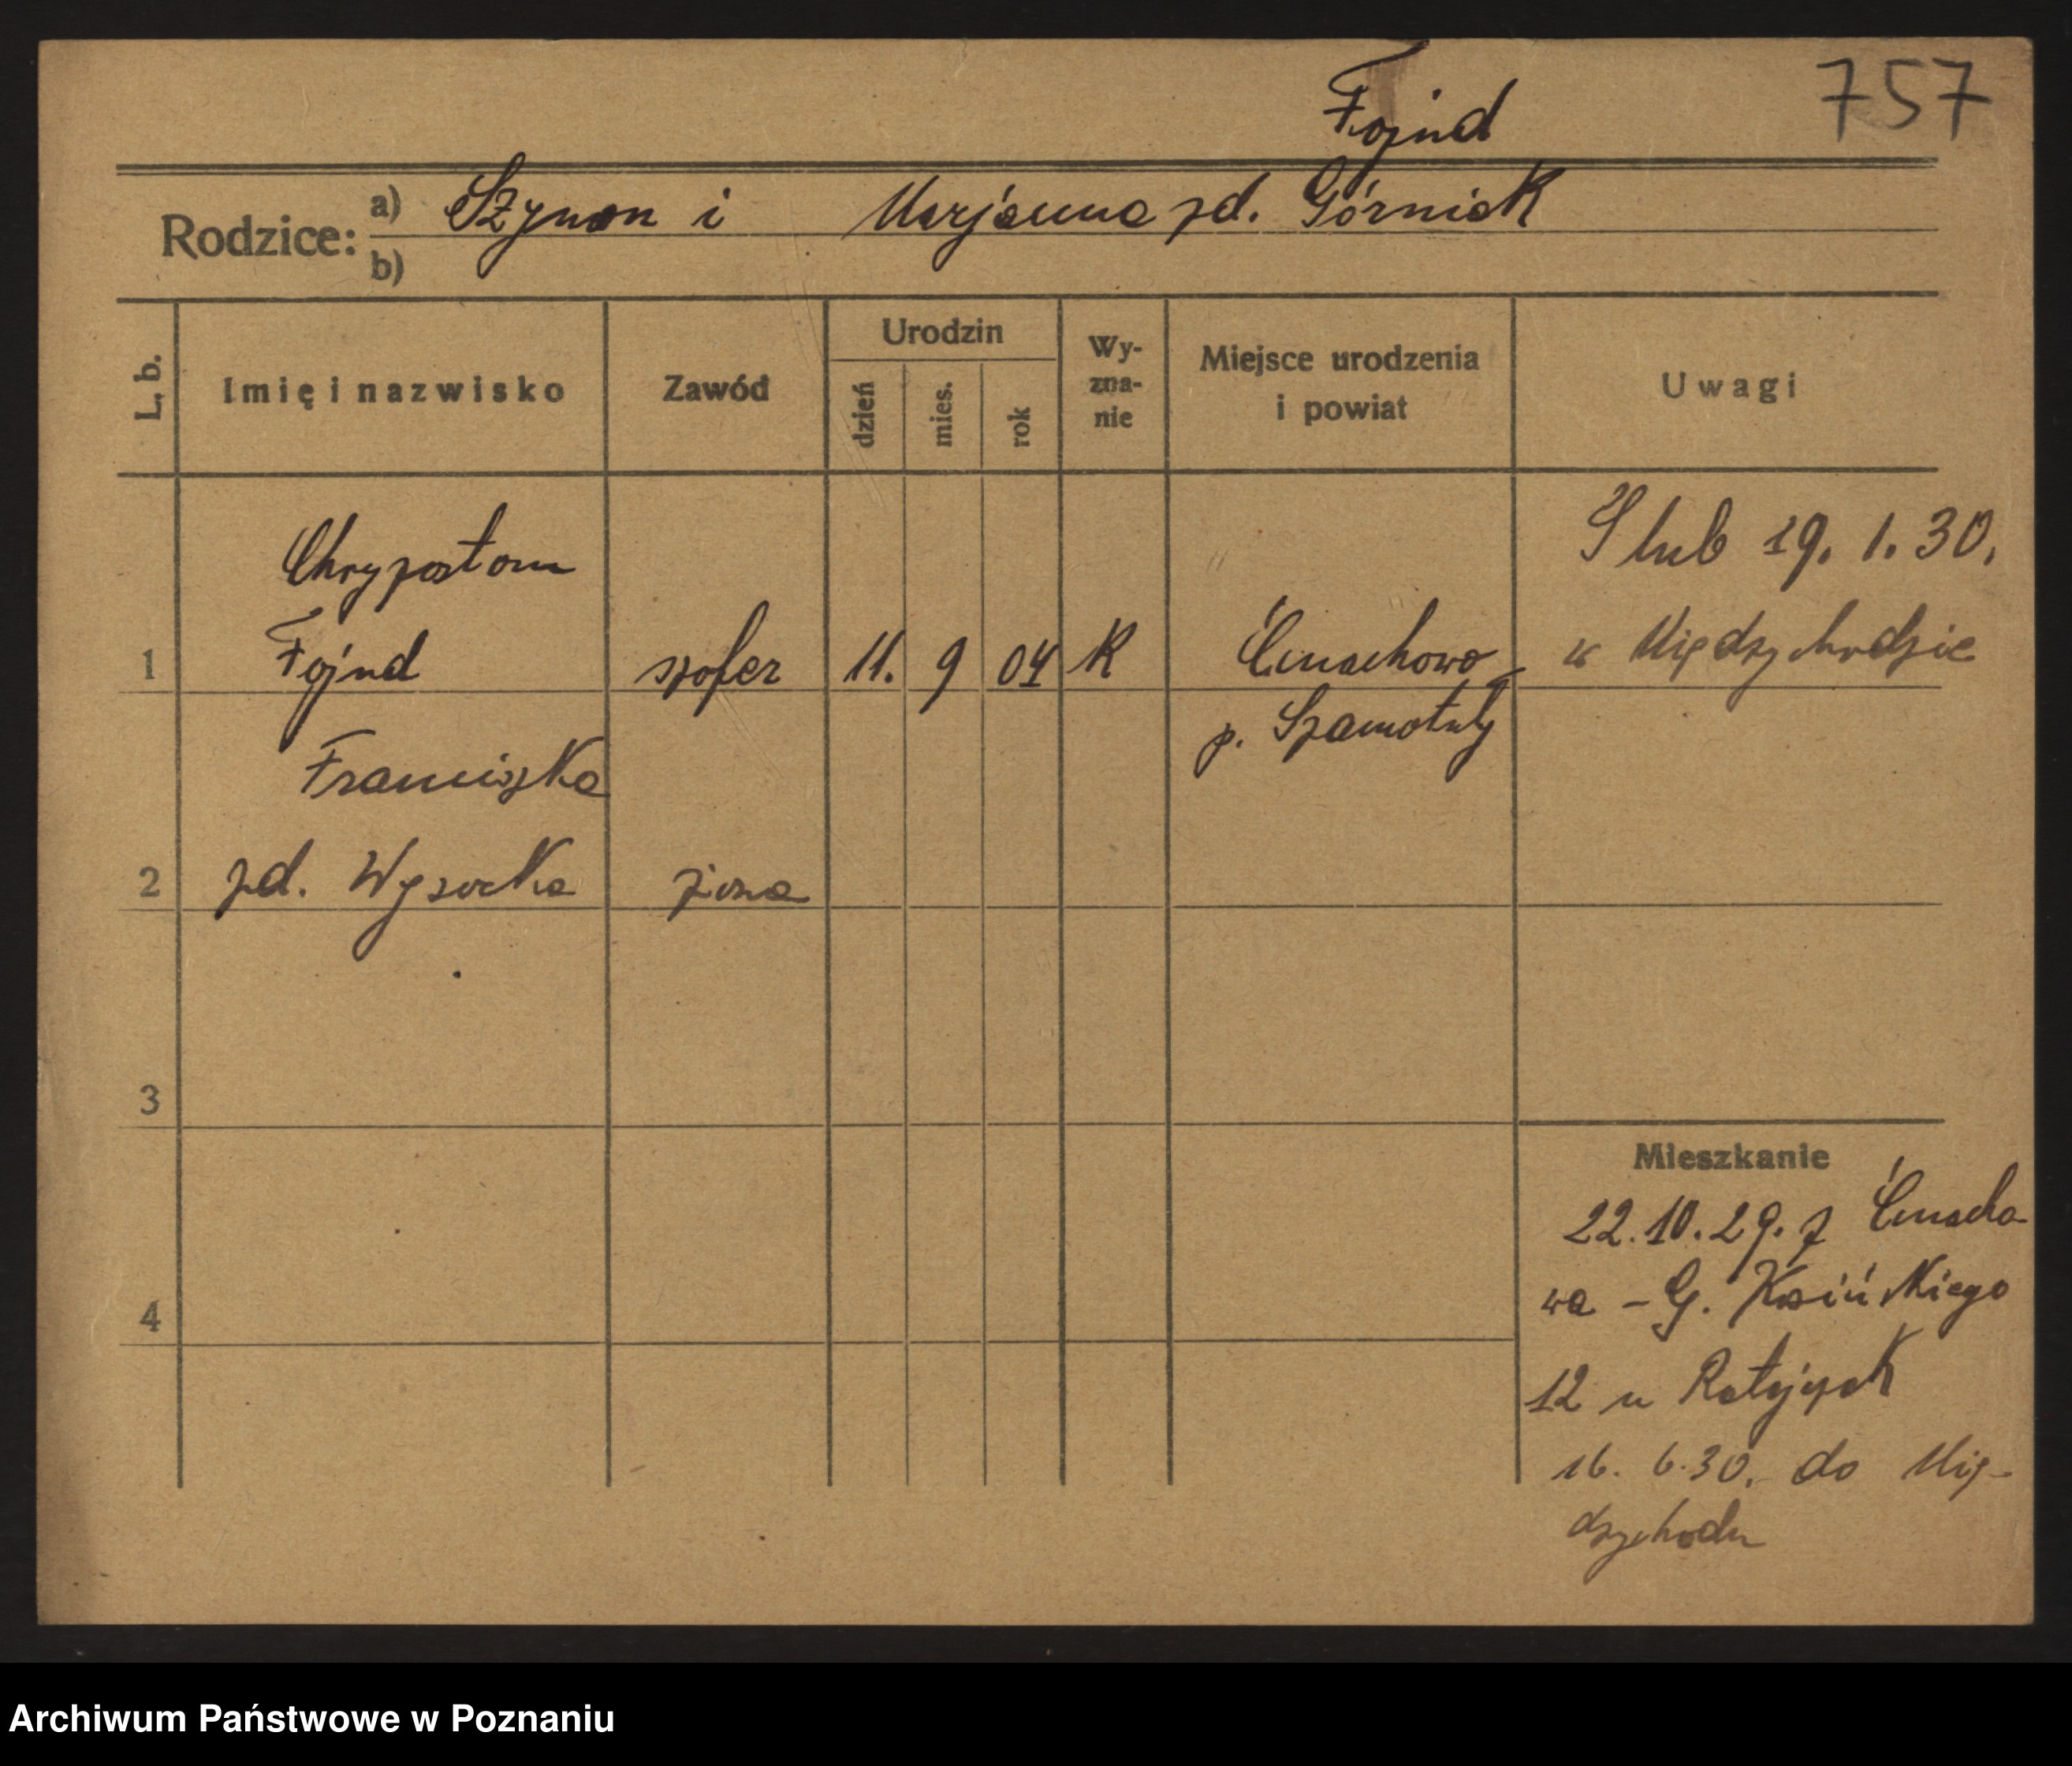 Fojnd
757
Rodzice:
a) Szymon i Marjanna zd. Górniak
b)
L. b.
Imię i nazwisko
Zawód
Urodzin
dzień
mies.
rok
Wy-
zna-
nie
Miejsce urodzenia
i powiat
Uwagi
Chryzostom
Fojnd
1
szofer
11.
9
04
K
Ćmachowo
p. Szamotuły
Ślub 19. 1. 30.
w Międzychodzie
Franciszka
2
zd. Wysocka
żona
3
4
Mieszkanie
22.10.29. z Ćmacho-
wa – G. Kosińskiego
12 u
16. 6.30. do Mię-
dzychodu
Archiwum Państwowe w Poznaniu